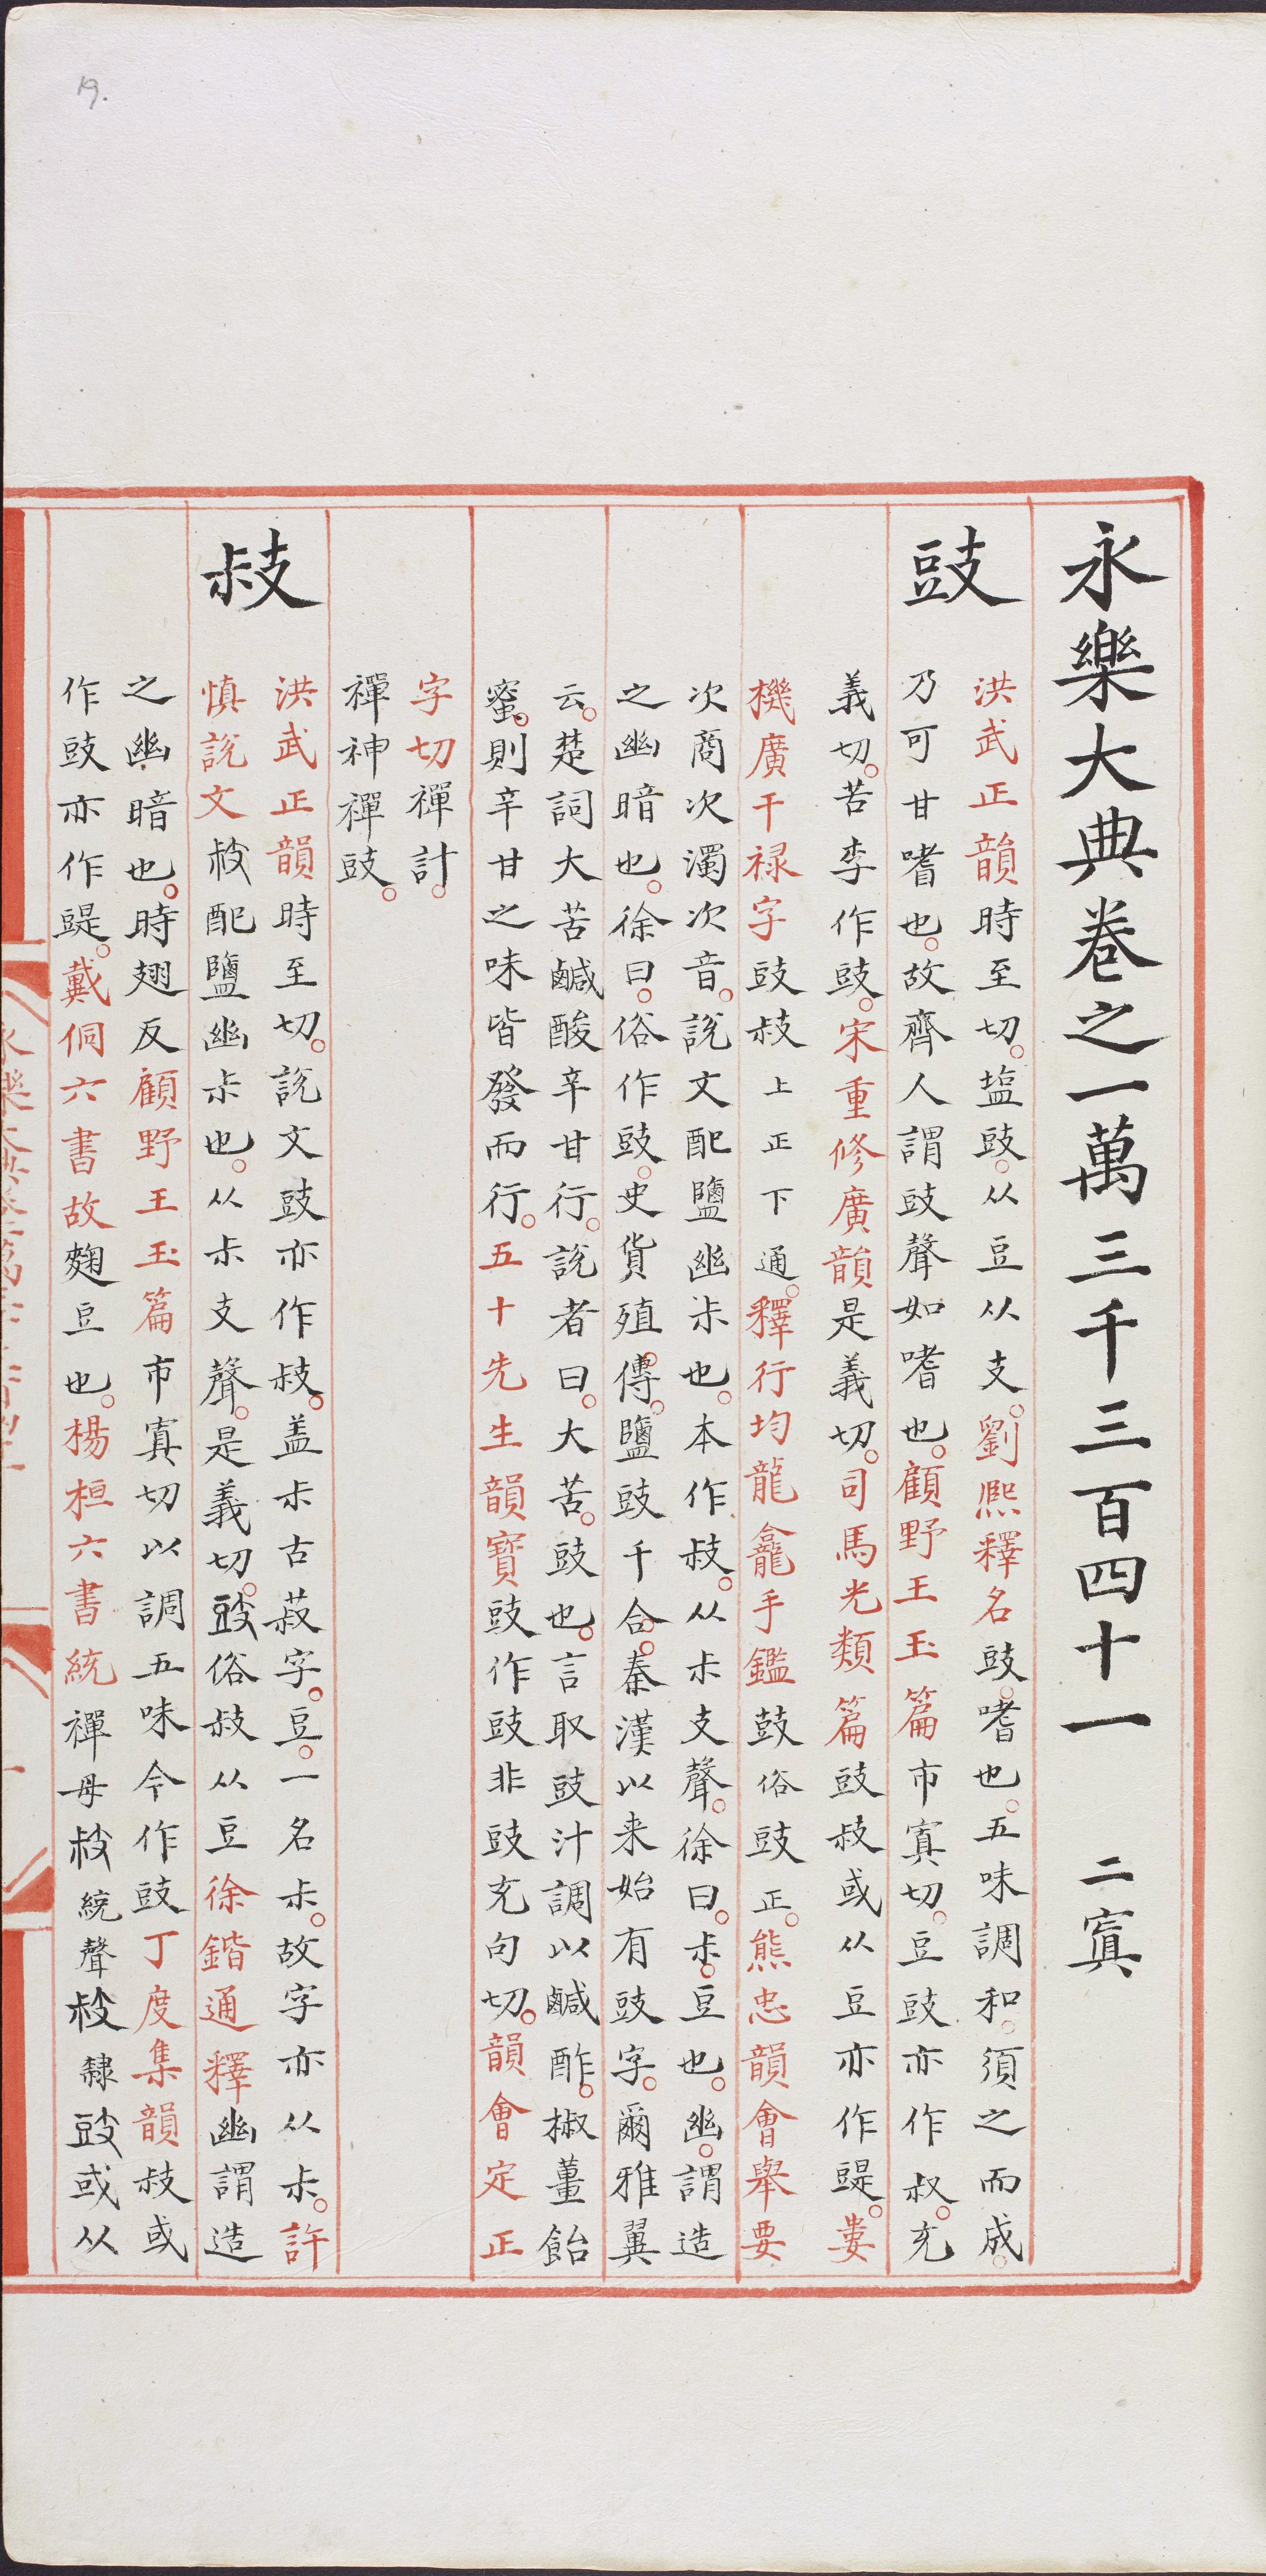 19.
永樂大典卷之一萬三千三百四十一 二寘
豉
洪武正韻時至切。塩豉。从豆从支。劉熈釋名豉。嗜也。五味調和。須之而成。
乃可甘嗜也。故齊人謂豉聲如嗜也。顧野王玉篇市寘切。豆豉亦作𢻃。充
義切。苦李作豉。宋重修廣韻是義切。司馬光類篇豉𢻃或从豆亦作䜻。婁
機廣干禄字豉𢻃上正下通。釋行均龍龕手鑑鼓俗豉正。熊忠韻會舉要
次商次濁次音。說文配鹽幽尗也。本作𢻃。从尗支聲。徐曰。尗。豆也。幽。謂造
之幽暗也。徐曰。俗作豉。史貨殖傳。鹽豉千合。秦漢以来始有豉字。爾雅翼
云。楚詞大苦鹹酸辛甘行。說者曰。大苦。豉也。言取豉汁調以鹹酢。椒薑飴
蜜。則辛甘之味皆發而行。五十先生韻寳豉作豉非豉充句切。韻會定正
字切禪計。
禪神禪豉。
𢻃
洪武正韻時至切。說文豉亦作𢻃。盖尗古菽字。豆。一名尗。故字亦从尗。許
慎說文𢻃配鹽幽尗也。从尗支聲。是義切。豉俗𢻃从豆徐鍇通釋幽謂造
之幽暗也。時翅反顧野王玉篇市寘切以調五味今作豉丁度集韻𢻃或
作豉亦作䜻。戴侗六書故麴豆也。楊桓六書統禪母𢻃統聲𢻃隸豉或从